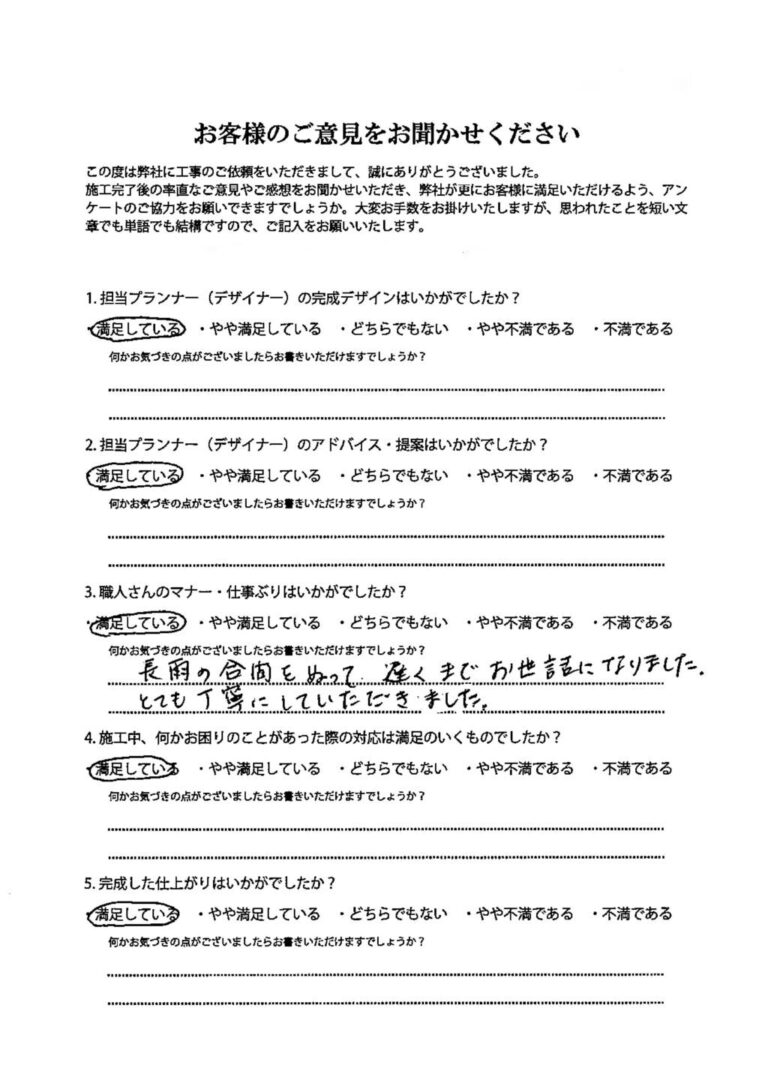 お客様のご意見をお聞かせください
この度は弊社に工事のご依頼をいただきまして、誠にありがとうございました。
施工完了後の率直なご意見やご感想をお聞かせいただき、弊社が更にお客様に満足いただけるよう、アン
ケートのご協力をお願いできますでしょうか。大変お手数をお掛けいたしますが、思われたことを短い文
章でも単語でも結構ですので、ご記入をお願いいたします。
1. 担当プランナー（デザイナー）の完成デザインはいかがでしたか？
・満足している ・やや満足している ・どちらでもない ・やや不満である ・不満である
何かお気づきの点がございましたらお書きいただけますでしょうか？
2. 担当プランナー（デザイナー）のアドバイス・提案はいかがでしたか？
・満足している ・やや満足している ・どちらでもない ・やや不満である ・不満である
何かお気づきの点がございましたらお書きいただけますでしょうか？
3. 職人さんのマナー・仕事ぶりはいかがでしたか？
・満足している ・やや満足している ・どちらでもない ・やや不満である ・不満である
何かお気づきの点がございましたらお書きいただけますでしょうか？
長雨の合間をぬって、遅くまでお世話になりました。
とても丁寧にしていただきました。
4. 施工中、何かお困りのことがあった際の対応は満足のいくものでしたか？
・満足している ・やや満足している ・どちらでもない ・やや不満である ・不満である
何かお気づきの点がございましたらお書きいただけますでしょうか？
5. 完成した仕上がりはいかがでしたか？
・満足している ・やや満足している ・どちらでもない ・やや不満である ・不満である
何かお気づきの点がございましたらお書きいただけますでしょうか？